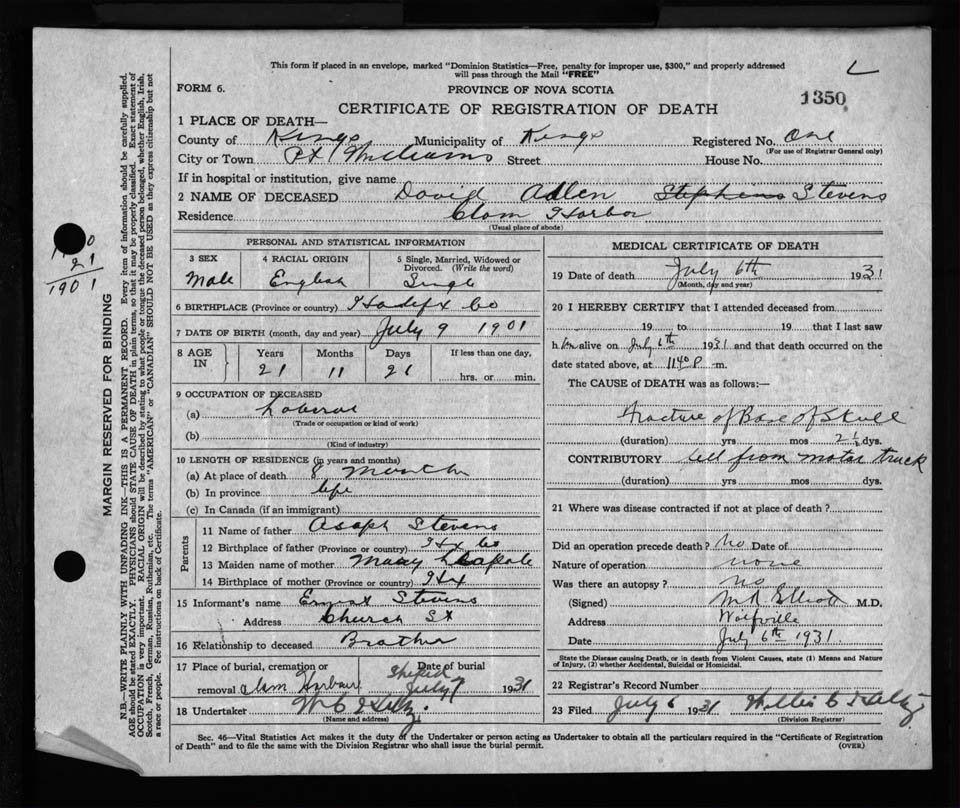 This form if placed in an envelope, marked "Dominion Statistics—Free, penalty for improper use, $300," and properly addressed
will pass through the Mail "FREE"
FORM 6.
PROVINCE OF NOVA SCOTIA
1350
CERTIFICATE OF REGISTRATION OF DEATH
1 PLACE OF DEATH—
County of Kings Municipality of Kings Registered No. One
(For use of Registrar General only)
City or Town Pt Williams Street House No.
If in hospital or institution, give name
2 NAME OF DECEASED David Allen Stephens Stevens
Residence Clam Harbor
(Usual place of abode)
MARGIN RESERVED FOR BINDING
N.B.—WRITE PLAINLY WITH UNFADING INK—THIS IS A PERMANENT RECORD. Every item of information should be carefully supplied.
AGE should be stated EXACTLY. PHYSICIANS should STATE CAUSE OF DEATH in plain terms, so that it may be properly classified. Exact statement of
OCCUPATION is very important. RACIAL ORIGIN will be described by stating to what people or tongue the deceased person belonged, whether English, Irish,
Scotch, French, German, Russian, Ruthenian, etc. The terms "AMERICAN" or "CANADIAN" SHOULD NOT BE USED as they express citizenship but not
a race or people. Fee instructions on back of Certificate.
21
1901
PERSONAL AND STATISTICAL INFORMATION
3 SEX
Male
4 RACIAL ORIGIN
English
5 Single, Married, Widowed or
Divorced. (Write the word)
Single
6 BIRTHPLACE (Province or country) Halifx Co
7 DATE OF BIRTH (month, day and year) July 9 1901
8 AGE
IN
Years Months Days If less than one day,
21 11 21 hrs. or min.
9 OCCUPATION OF DECEASED
(a) Laborer
(Trade or occupation or kind of work)
(b)
(Kind of industry)
10 LENGTH OF RESIDENCE (in years and months)
(a) At place of death 8 Months
(b) In province life
(c) In Canada (if an immigrant)
Parents
11 Name of father Asaph Stevens
12 Birthplace of father (Province or country) Hx Co
13 Maiden name of mother Mary
14 Birthplace of mother (Province or country) Hx
15 Informant's name Ernest Stevens
Address Church St
16 Relationship to deceased Brother
17 Place of burial, cremation or Date of burial
Shiped
removal Clam Harbour July 7 1931
18 Undertaker W C
(Name and address)
MEDICAL CERTIFICATE OF DEATH
19 Date of death July 6th 1931
(Month, day and year)
20 I HEREBY CERTIFY that I attended deceased from
19 to 19 that I last saw
h im alive on July 6th 1931 and that death occurred on the
date stated above, at 1140 P m.
The CAUSE of DEATH was as follows:—
Fracture of Base of Skull
(duration) yrs mos 2½ dys.
CONTRIBUTORY fell from motor truck
(duration) yrs. mos dys.
21 Where was disease contracted if not at place of death?
Did an operation precede death? No Date of
Nature of operation none
Was there an autopsy? no
(Signed) M R Elliott M.D.
Address Wolfville
Date July 6th 1931
State the Disease causing Death, or in death from Violent Causes, state (1) Means and Nature
of Injury, (2) whether Accidental, Suicidal or Homicidal.
22 Registrar's Record Number
23 Filed July 6 1931 Willie C
(Division Registrar)
Sec. 46—Vital Statistics Act makes it the duty of the Undertaker or person acting as Undertaker to obtain all the particulars required in the "Certificate of Registration
of Death" and to file the same with the Division Registrar who shall issue the burial permit.
(OVER)